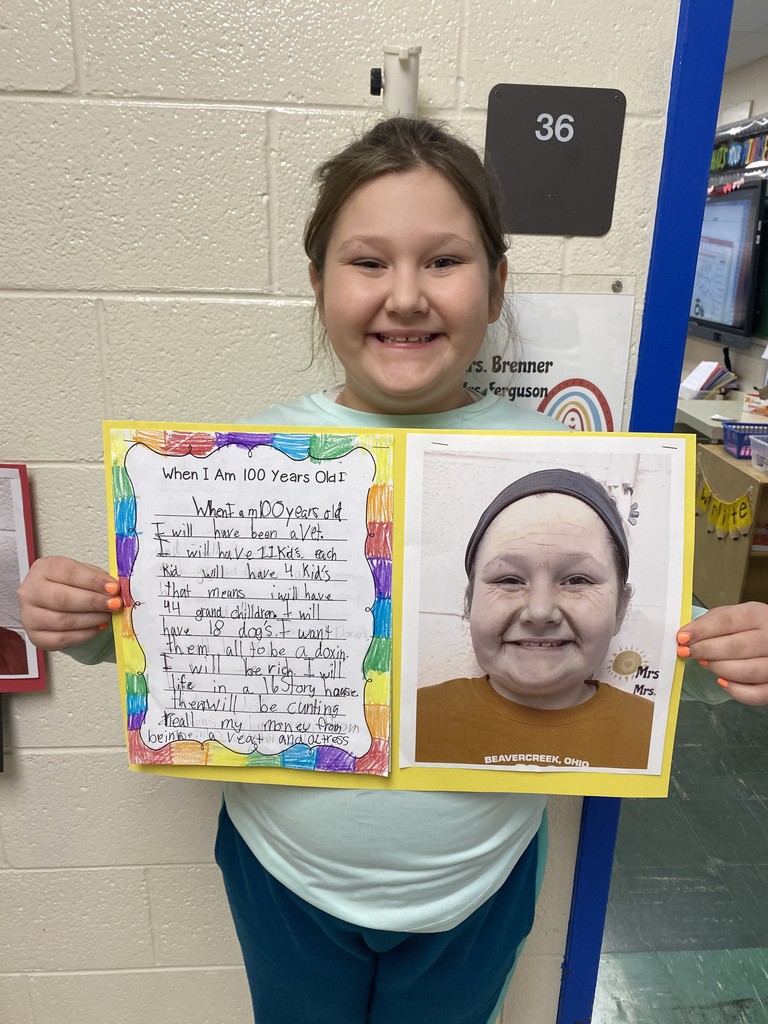 36
rs. Brenner
rs. Ferguson
When I Am 100 Years Old I
When I am 100 years old
I will have been a vet.
I will have 11 Kid's. each
Kid will have 4 Kid's
that means i will have
44 grand chilldren. I will
have 18 dog's. I want
them all to be a doxin.
I will be rich I will
life in a 16 story house.
then will be cunting
all my money from
being a veat and actress
Mrs
Mrs.
BEAVERCREEK, OHIO